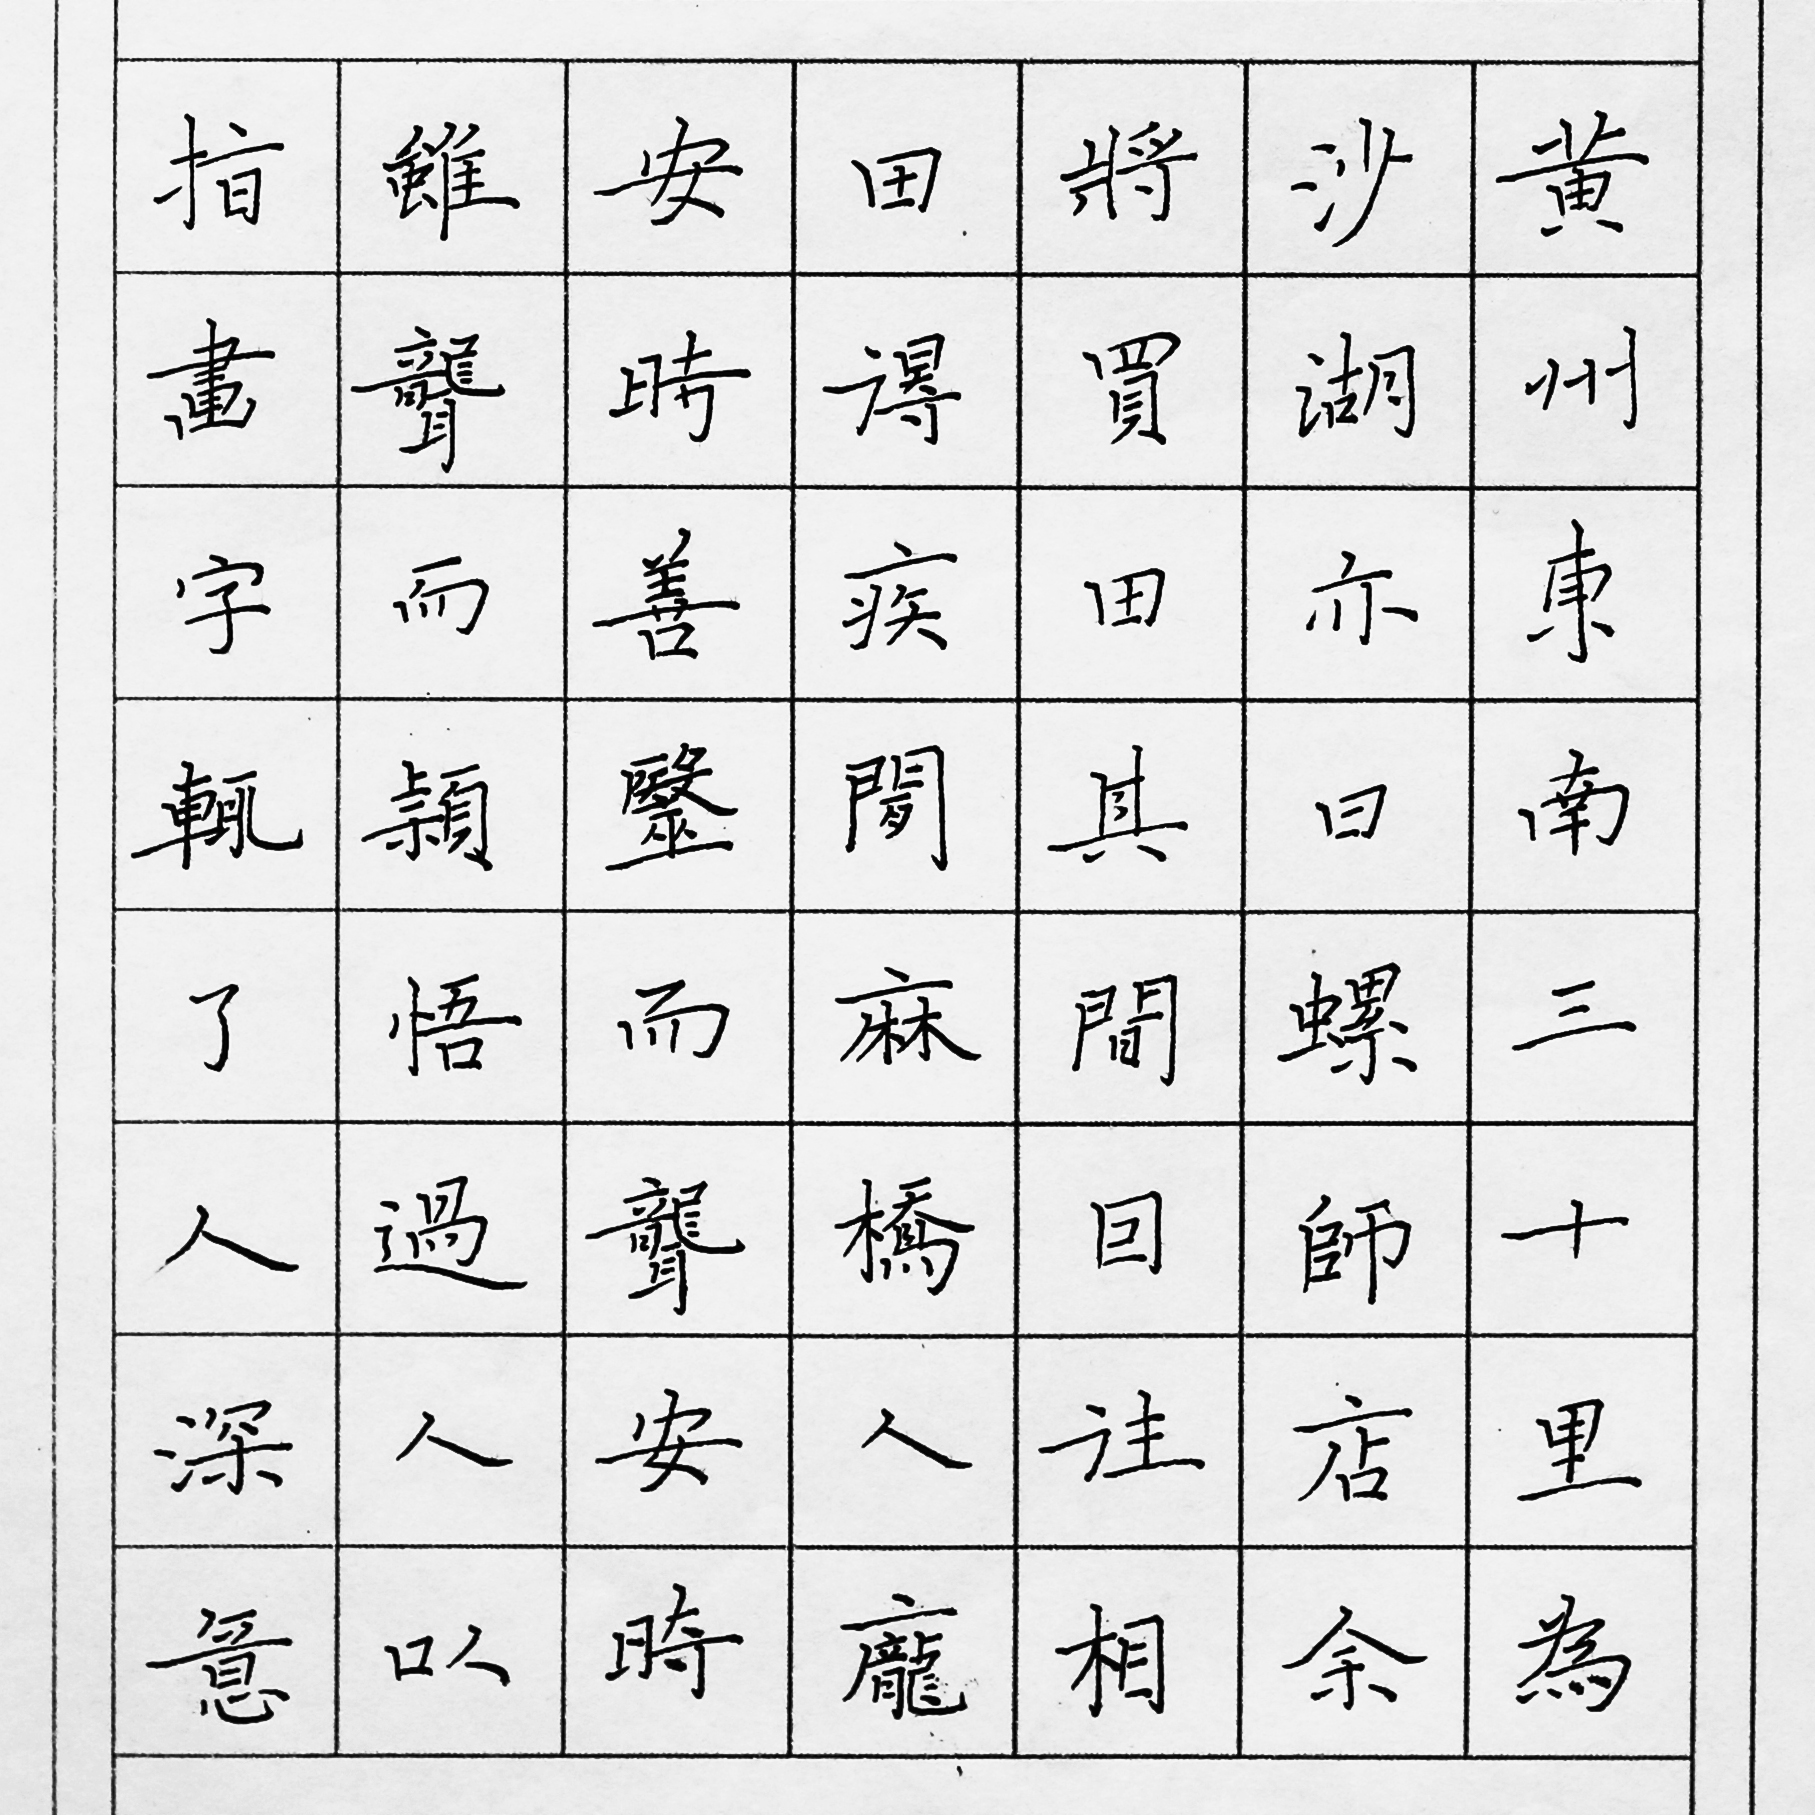 黄州東南三十里為
沙湖亦曰螺師店余
將買田其間因往相
田得疾聞麻橋人龐
安時善毉而聾安時
雖聾而穎悟過人以
指畫字輒了人深意